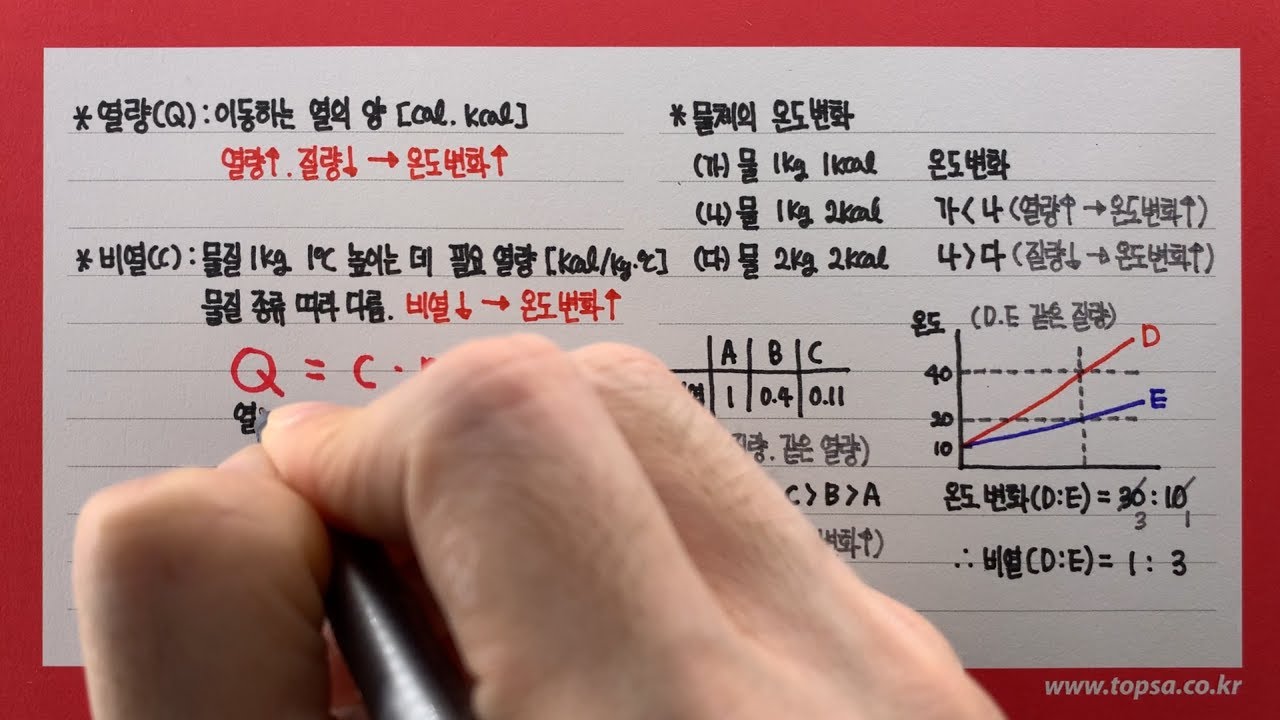 * 열량(Q) : 이동하는 열의 양 [cal. kcal]
열량↑. 질량↓ → 온도변화↑
* 비열(C) : 물질 1kg 1℃ 높이는 데 필요 열량 [kcal/kg·℃]
물질 종류 따라 다름. 비열↓ → 온도변화↑
Q = C ·
* 물체의 온도변화
(가) 물 1kg 1kcal 온도변화
(나) 물 1kg 2kcal 가 < 나 (열량↑ → 온도변화↑)
(다) 물 2kg 2kcal 나 > 다 (질량↓ → 온도변화↑)
A B C
1 0.4 0.11
같은 열량)
C > B > A
변화↑)
온도 (D.E 같은 질량)
D
40
E
20
10
온도변화(D:E) = 30 : 10
3 1
∴ 비열(D:E) = 1 : 3
www.topsa.co.kr